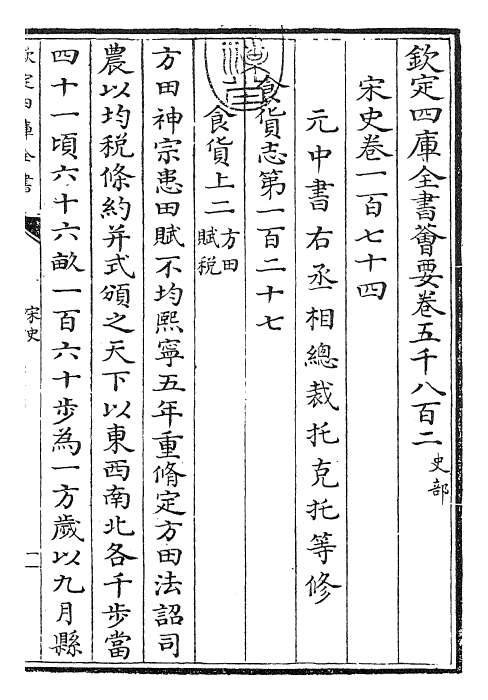 欽定四庫全書薈要卷五千八百二 史部
宋史卷一百七十四
元中書右丞相總裁托克托等修
食貨志第一百二十七
食貨上二 方田 賦税
方田神宗患田賦不均熙寧五年重脩定方田法詔司
農以均税條約并式頒之天下以東西南北各千步當
四十一頃六十六畝一百六十步為一方歲以九月縣
欽定四庫全書
宋史
一